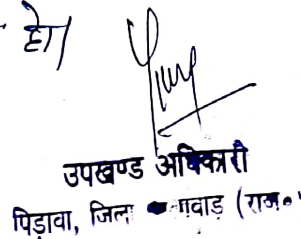 हो।
उपखण्ड अधिकारी
पिड़ावा, जिला वाड़ (राज०